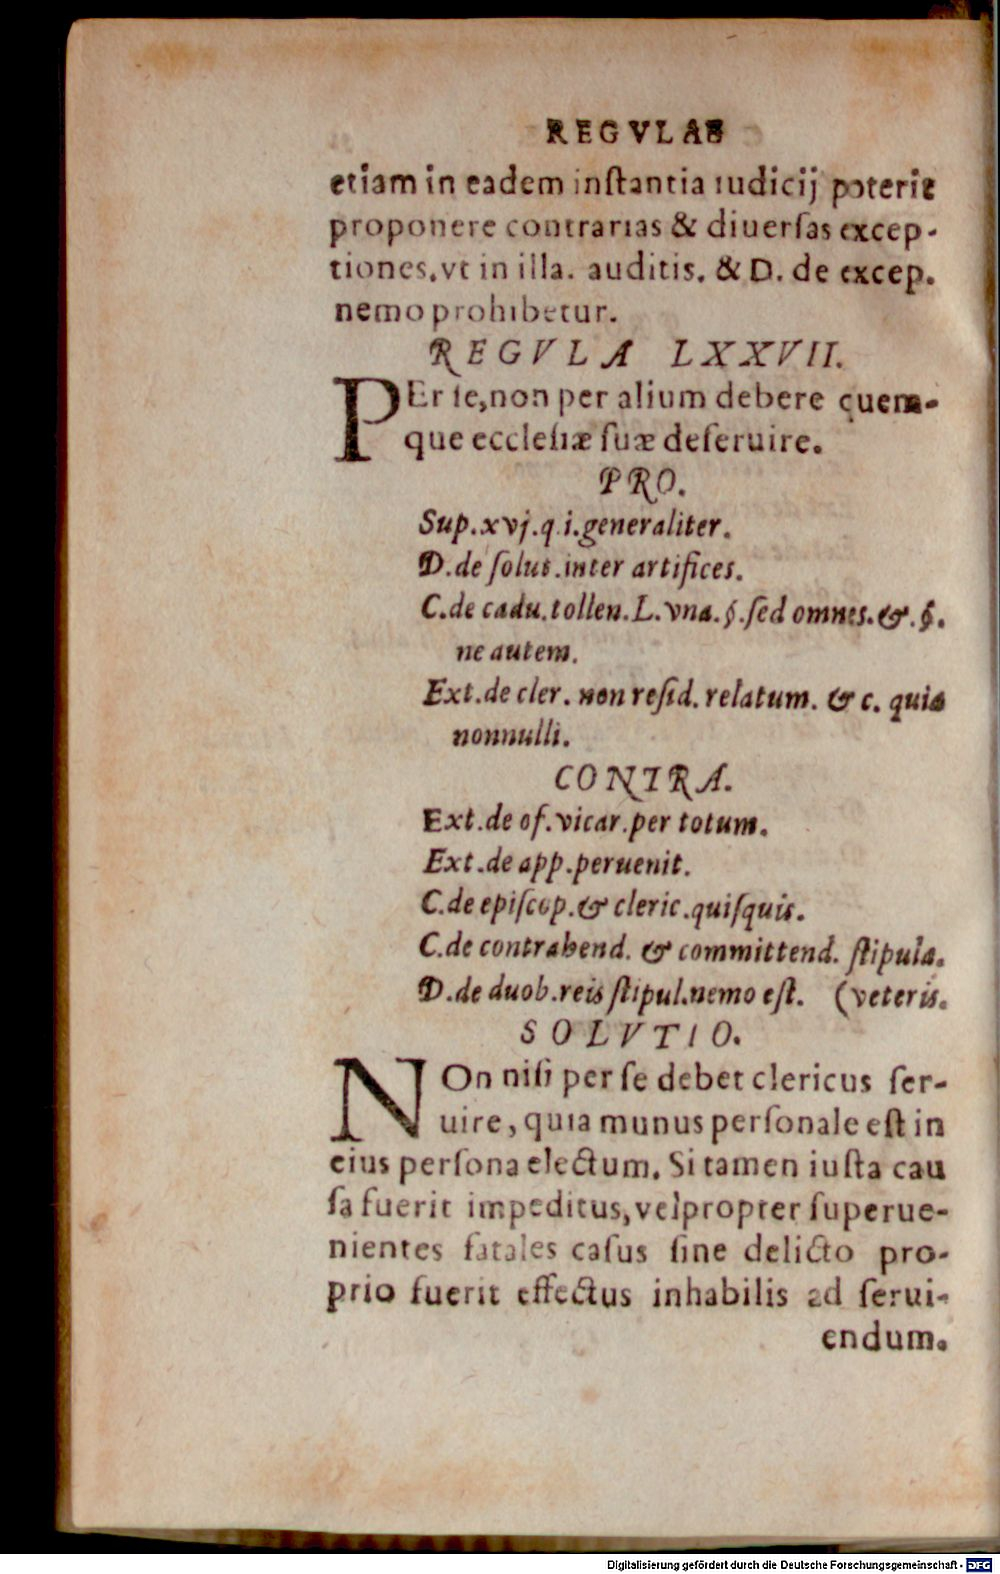 REGVLAE
etiam in eadem inſtantia iudicij poterit
proponere contrarias & diuerſas excep-
tiones, vt in illa. auditis. & D. de excep.
nemo prohibetur.
REGVLA LXXVII.
PEr ſe, non per alium debere quem-
que eccleſiæ ſuæ deſeruire.
PRO.
Sup. xvj. q. i. generaliter.
D. de ſolut. inter artifices.
C. de cadu. tollen. L. vna. §. ſed omnes. & . §.
ne autem.
Ext. de cler. non reſid. relatum. & c. quia
nonnulli.
CONTRA.
Ext. de of. vicar. per totum.
Ext. de app. peruenit.
C. de epiſcop. & cleric. quiſquis.
C. de contrahend. & committend. ſtipula.
D. de duob. reis ſtipul. nemo eſt. (veteris.
SOLVTIO.
NOn niſi per ſe debet clericus ſer-
uire, quia munus perſonale eſt in
eius perſona electum. Si tamen iuſta cau
ſa fuerit impeditus, vel propter ſuperue-
nientes fatales caſus ſine delicto pro-
prio fuerit effectus inhabilis ad ſerui-
endum.
Digitalisierung gefördert durch die Deutsche Forschungsgemeinschaft - DFG